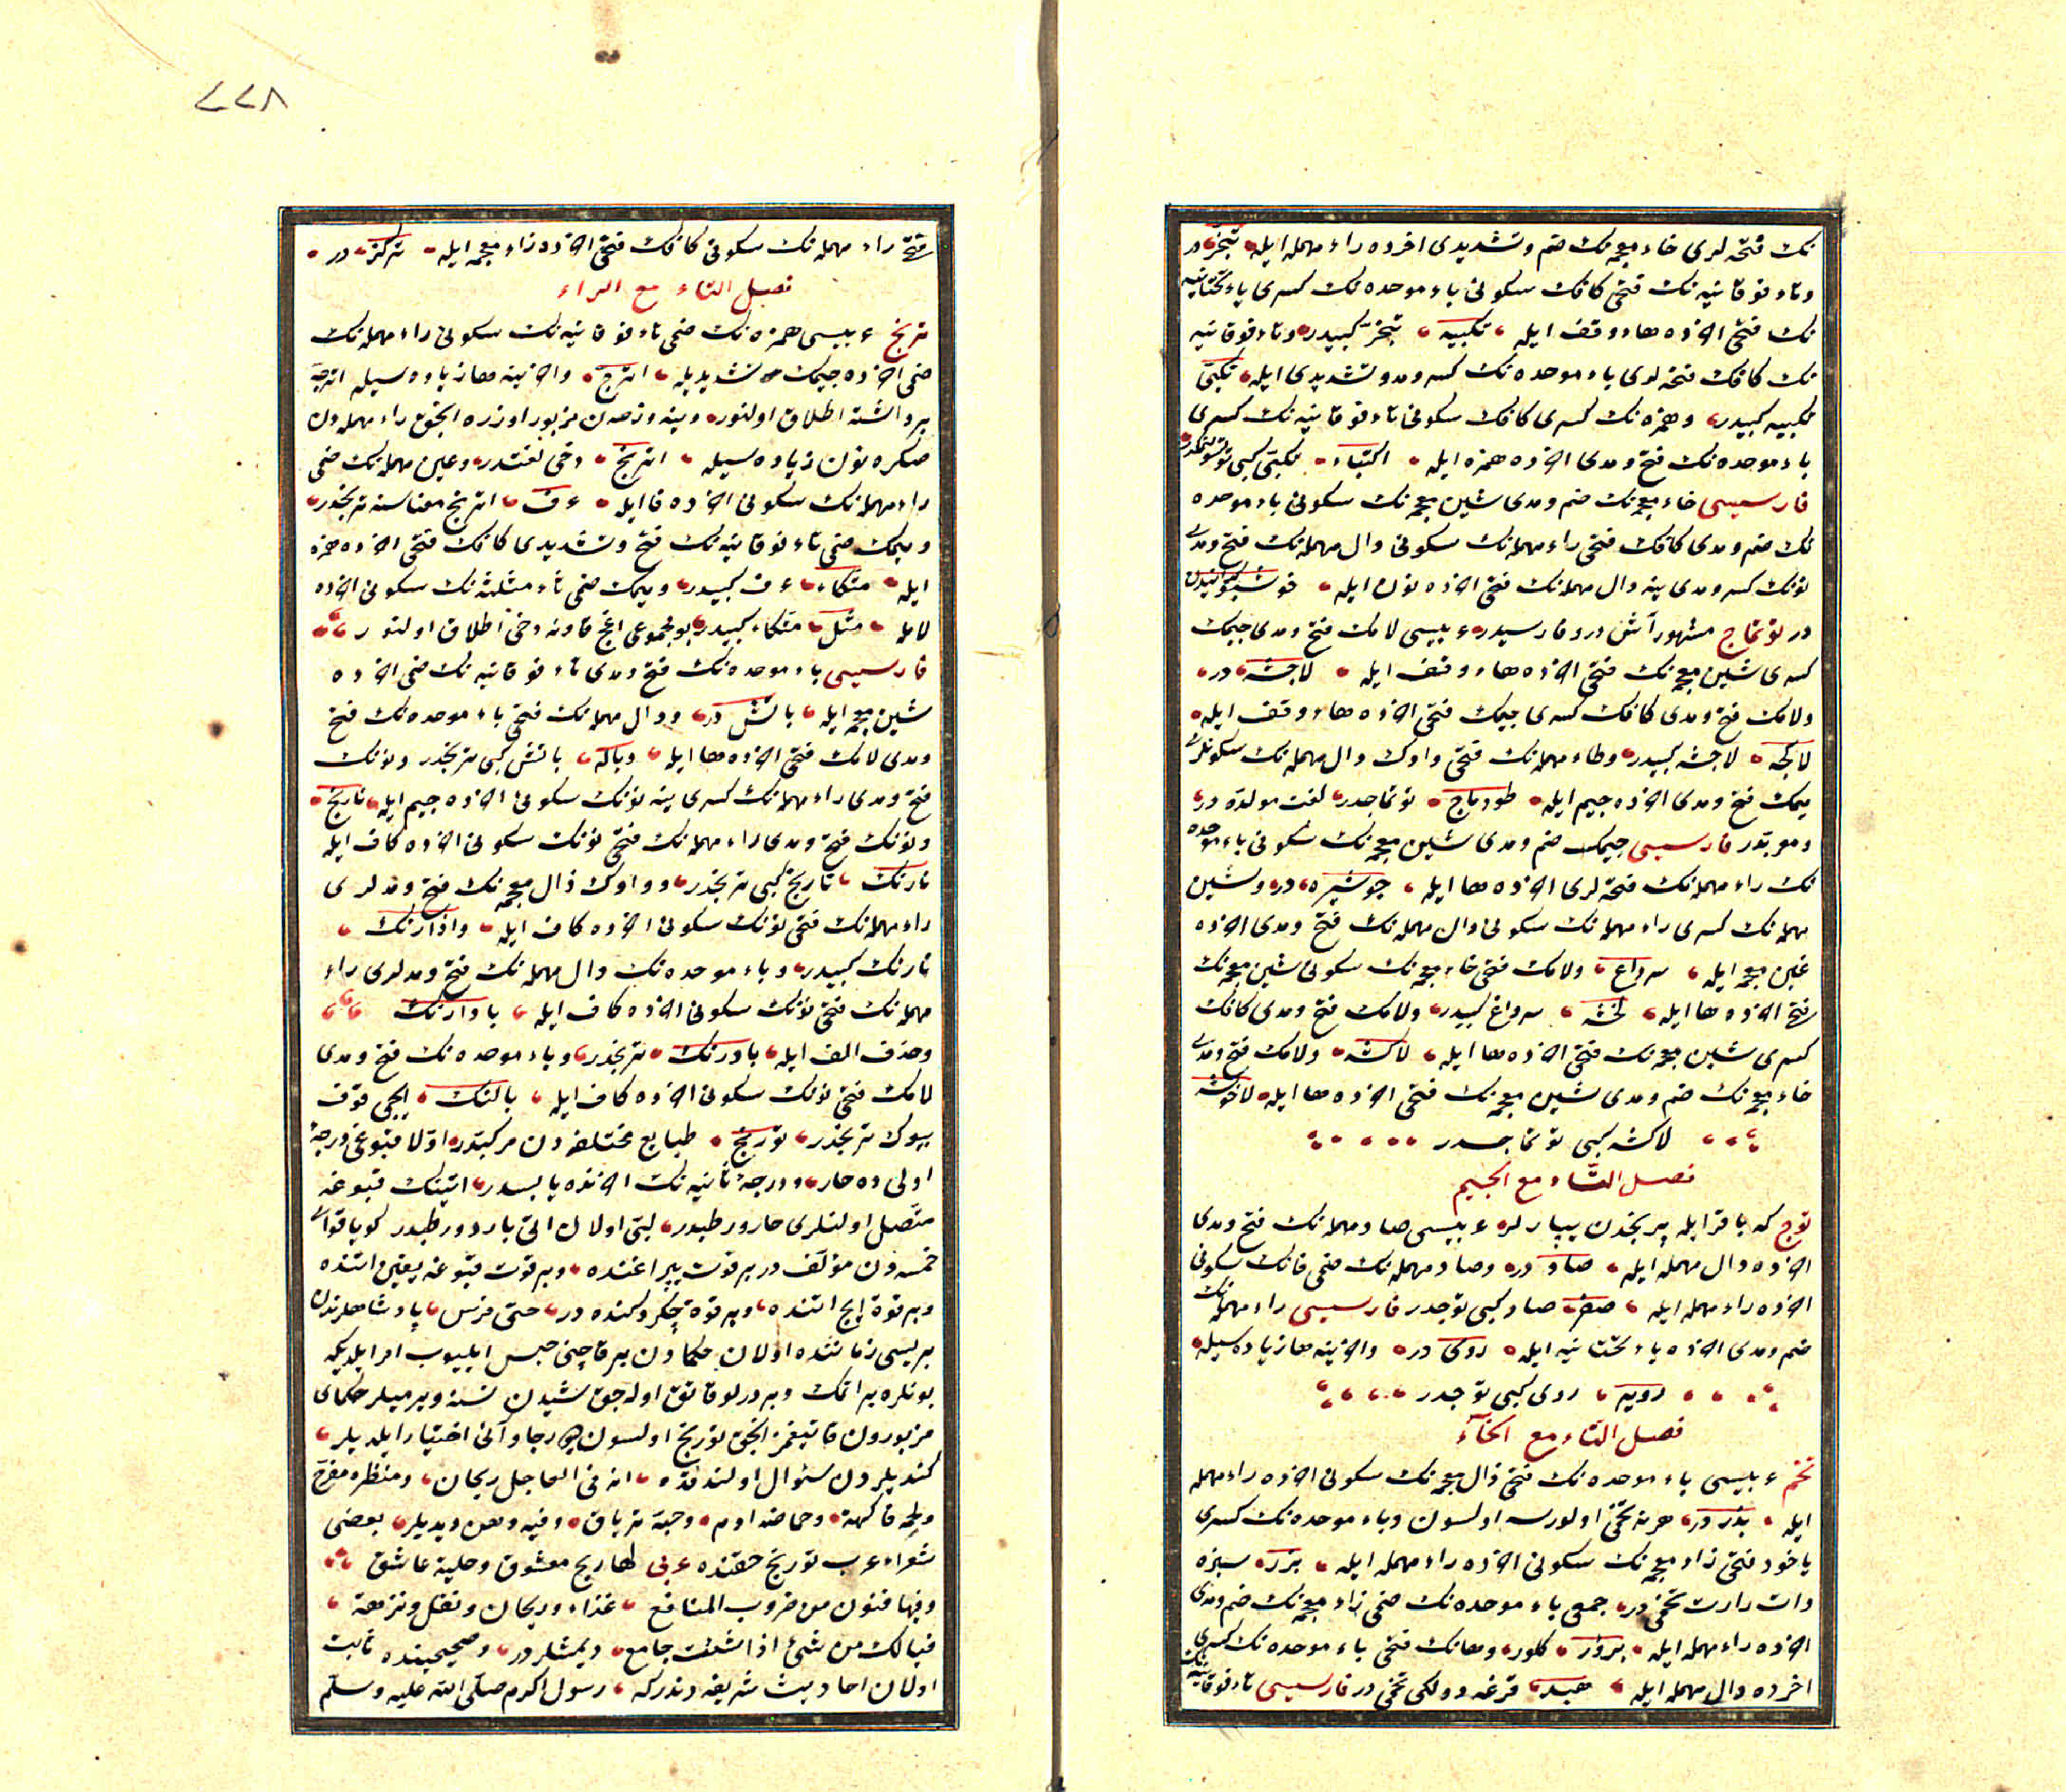 نك فتحه لرى خاء معجمه نك ضم وتشديدى اخرده راء مهمله ايله تبخر در
وتاء فوقانيه نك فتحى كافك سكونى باء موحده نك كسرى ياء تحتانيه
نك فتحى اخرده هاء وقف ايله تكبيه تبخر كبيدر وتاء فوقانيه
نك كافك فتحه لرى باء موحده نك كسر ومد وتشديدى ايله تكبى
تكبيه كبيدر وهمزه نك كسرى كافك سكونى تاء فوقانيه نك كسرى
باء موحده نك فتح ومدى اخرده همزه ايله اكتباء تكبى كبى
فارسيسى خاء معجمه نك ضم ومدى شين معجمه نك سكونى باء موحده
نك ضم ومدى كافك فتحى راء مهمله نك سكونى دال مهمله نك فتح ومدى
نونك كسر ومدى ينه دال مهمله نك فتحى اخرده نون ايله
در توتماج مشهور آش در وفارسيدر عربيسى لامك فتح ومدى جيمك
كسرى شين معجمه نك فتحى اخرده هاء وقف ايله لاجشه در
ولامك فتح ومدى كافك كسرى جيمك فتحى اخرده هاء وقف ايله
لاكجه لاجشه كبيدر وطاء مهمله نك فتحى واوك دال مهمله نك سكونلرى
يمك فتح ومدى اخرده جيم ايله طودماج توتماجدر لغت مولده در
ومعربدر فارسيسى جيمك ضم ومدى شين معجمه نك سكونى باء موحده
نك راء مهمله نك فتحه لرى اخرده ها ايله جوشبره در وسين
مهمله نك كسرى راء مهمله نك سكونى دال مهمله نك فتح ومدى اخرده
غين معجمه ايله سرداغ ولامك فتحى خاء معجمه نك سكونى شين معجمه نك
فتحى اخرده ها ايله لخشه سرداغ كبيدر ولامك فتح ومدى كافك
كسرى شين معجمه نك فتحى اخرده ها ايله لاكشه ولامك فتح ومدى
خاء معجمه نك ضم ومدى شين معجمه نك فتحى اخرده ها ايله لاخوشه
لاكشه كبى توتماجدر
فصل التاء مع الجيم
توج كه باقر ايله پرنجدن يپارلر عربيسى صاد مهمله نك فتح ومدى
اخرده دال مهمله ايله صاد در وصاد مهمله نك ضمى فانك سكونى
اخرده راء مهمله ايله صفر صاد كبى توجدر فارسيسى راء مهمله نك
ضم ومدى اخرده ياء تحتانيه ايله روى در واخرينه ها زياده سيله
رويه روى كبى توجدر
فصل التاء مع الخاء
تخم عربيسى باء موحده نك فتحى ذال معجمه نك سكونى اخرده راء مهمله
ايله بذر در هر نه تخمى اولورسه اولسون وباء موحده نك كسرى
ياخود فتحى زاء معجمه نك سكونى اخرده راء مهمله ايله بزر سبزه
وات رارت تخمى در جمعى باء موحده نك ضمى زاء معجمه نك ضم ومدى
اخرده راء مهمله ايله بزور كلور وهانك فتحى باء موحده نك كسرى
اخرده دال مهمله ايله هبد قرغه دولكى تخمى در فارسيسى تاء فوقانيه نك
٢٢٨
فتحى راء مهمله نك سكونى كافك فتحى اخرده زاء معجمه ايله تركز در
فصل التاء مع الراء
ترنج عربيسى همزه نك ضمى تاء فوقانيه نك سكونى راء مهمله نك
ضمى اخرده جيمك تشديديله اترج واخرينه ها زياده سيله اترجه
بر دانه سنه اطلاق اولنور وينه وزن مزبور اوزره انجق راء مهمله دن
صكره نون زياده سيله اترنج دخى لغتدر وعين مهمله نك ضمى
راء مهمله نك سكونى اخرده فا ايله عرف اترنج معناسنه ترنجدر
وميمك ضمى تاء فوقانيه نك فتح وتشديدى كافك فتحى اخرده همزه
ايله متكاء عرف كبيدر وميمك ضمى ثاء مثلثه نك سكونى اخرده
لام ايله مثل متكاء كبيدر بو مجموعى اغج قاونه دخى اطلاق اولنور
فارسيسى باء موحده نك فتح ومدى تاء فوقانيه نك ضمى اخرده
شين معجمه ايله باتش در ودال مهمله نك فتحى باء موحده نك فتح
ومدى لامك فتحى اخرده ها ايله دباله باتش كبى ترنجدر ونونك
فتح ومدى راء مهمله نك كسرى ينه نونك سكونى اخرده جيم ايله نارنج
ونونك فتح ومدى راء مهمله نك فتحى نونك سكونى اخرده كاف ايله
نارنك نارنج كبى ترنجدر وواوك ذال معجمه نك فتح ومدلرى
راء مهمله نك فتحى نونك سكونى اخرده كاف ايله واذارنك
نارنك كبيدر وباء موحده نك دال مهمله نك فتح ومدلرى راء
مهمله نك فتحى نونك سكونى اخرده كاف ايله بادارنك
وحذف الف ايله بادرنك ترنجدر وباء موحده نك فتح ومدى
لامك فتحى نونك سكونى اخرده كاف ايله بالنك ايجى قوف
بيوك ترنجدر تورنج طبايع مختلفه دن مركبدر اولا قبوغى درجهٔ
اولى ده حار ودرجهٔ ثانيه نك اخرنده يابسدر اتينك قبوغنه
متصل اولنلرى حار ورطبدر لبى اولان اتى بارد ورطبدر كويا قواى
خمسه دن مؤلف در بر قوت يپراغنده وبر قوت قبوغنه يقين اتنده
وبر قوة ايج اتنده وبر قوة چكردكنده در حتى فرس پادشاهلرندن
بريسى زماننده اولان حكمادن بر قاچنى حبس ايليوب امر ايلديكه
بونلره بر اتمك وبر درلو قاتق اوله جق شيدن نسنه ويرميلر حكماى
مزبورون قاتيغمز انجق تورنج اولسون ديو رجا وآنى اختيار ايلديلر
كنديلردن سئوال اولندقده انه فى العاجل ريحان ومنظره مفرح
ولحمه فاكهة وحماضه ادم وحبة ترياق وفيه دهن ديديلر بعضى
شعراء عرب تورنج حقنده عربى لها ريح معشوق وحلية عاشق
وفيها فنون من ضروب المنافع غذاء وريحان ونقل ونزهة
فيالك من شئ اذا شئت جامع ديمشلردر وصحيحينده ثابت
اولان احاديث شريفه دندركه رسول اكرم صلى الله عليه وسلم